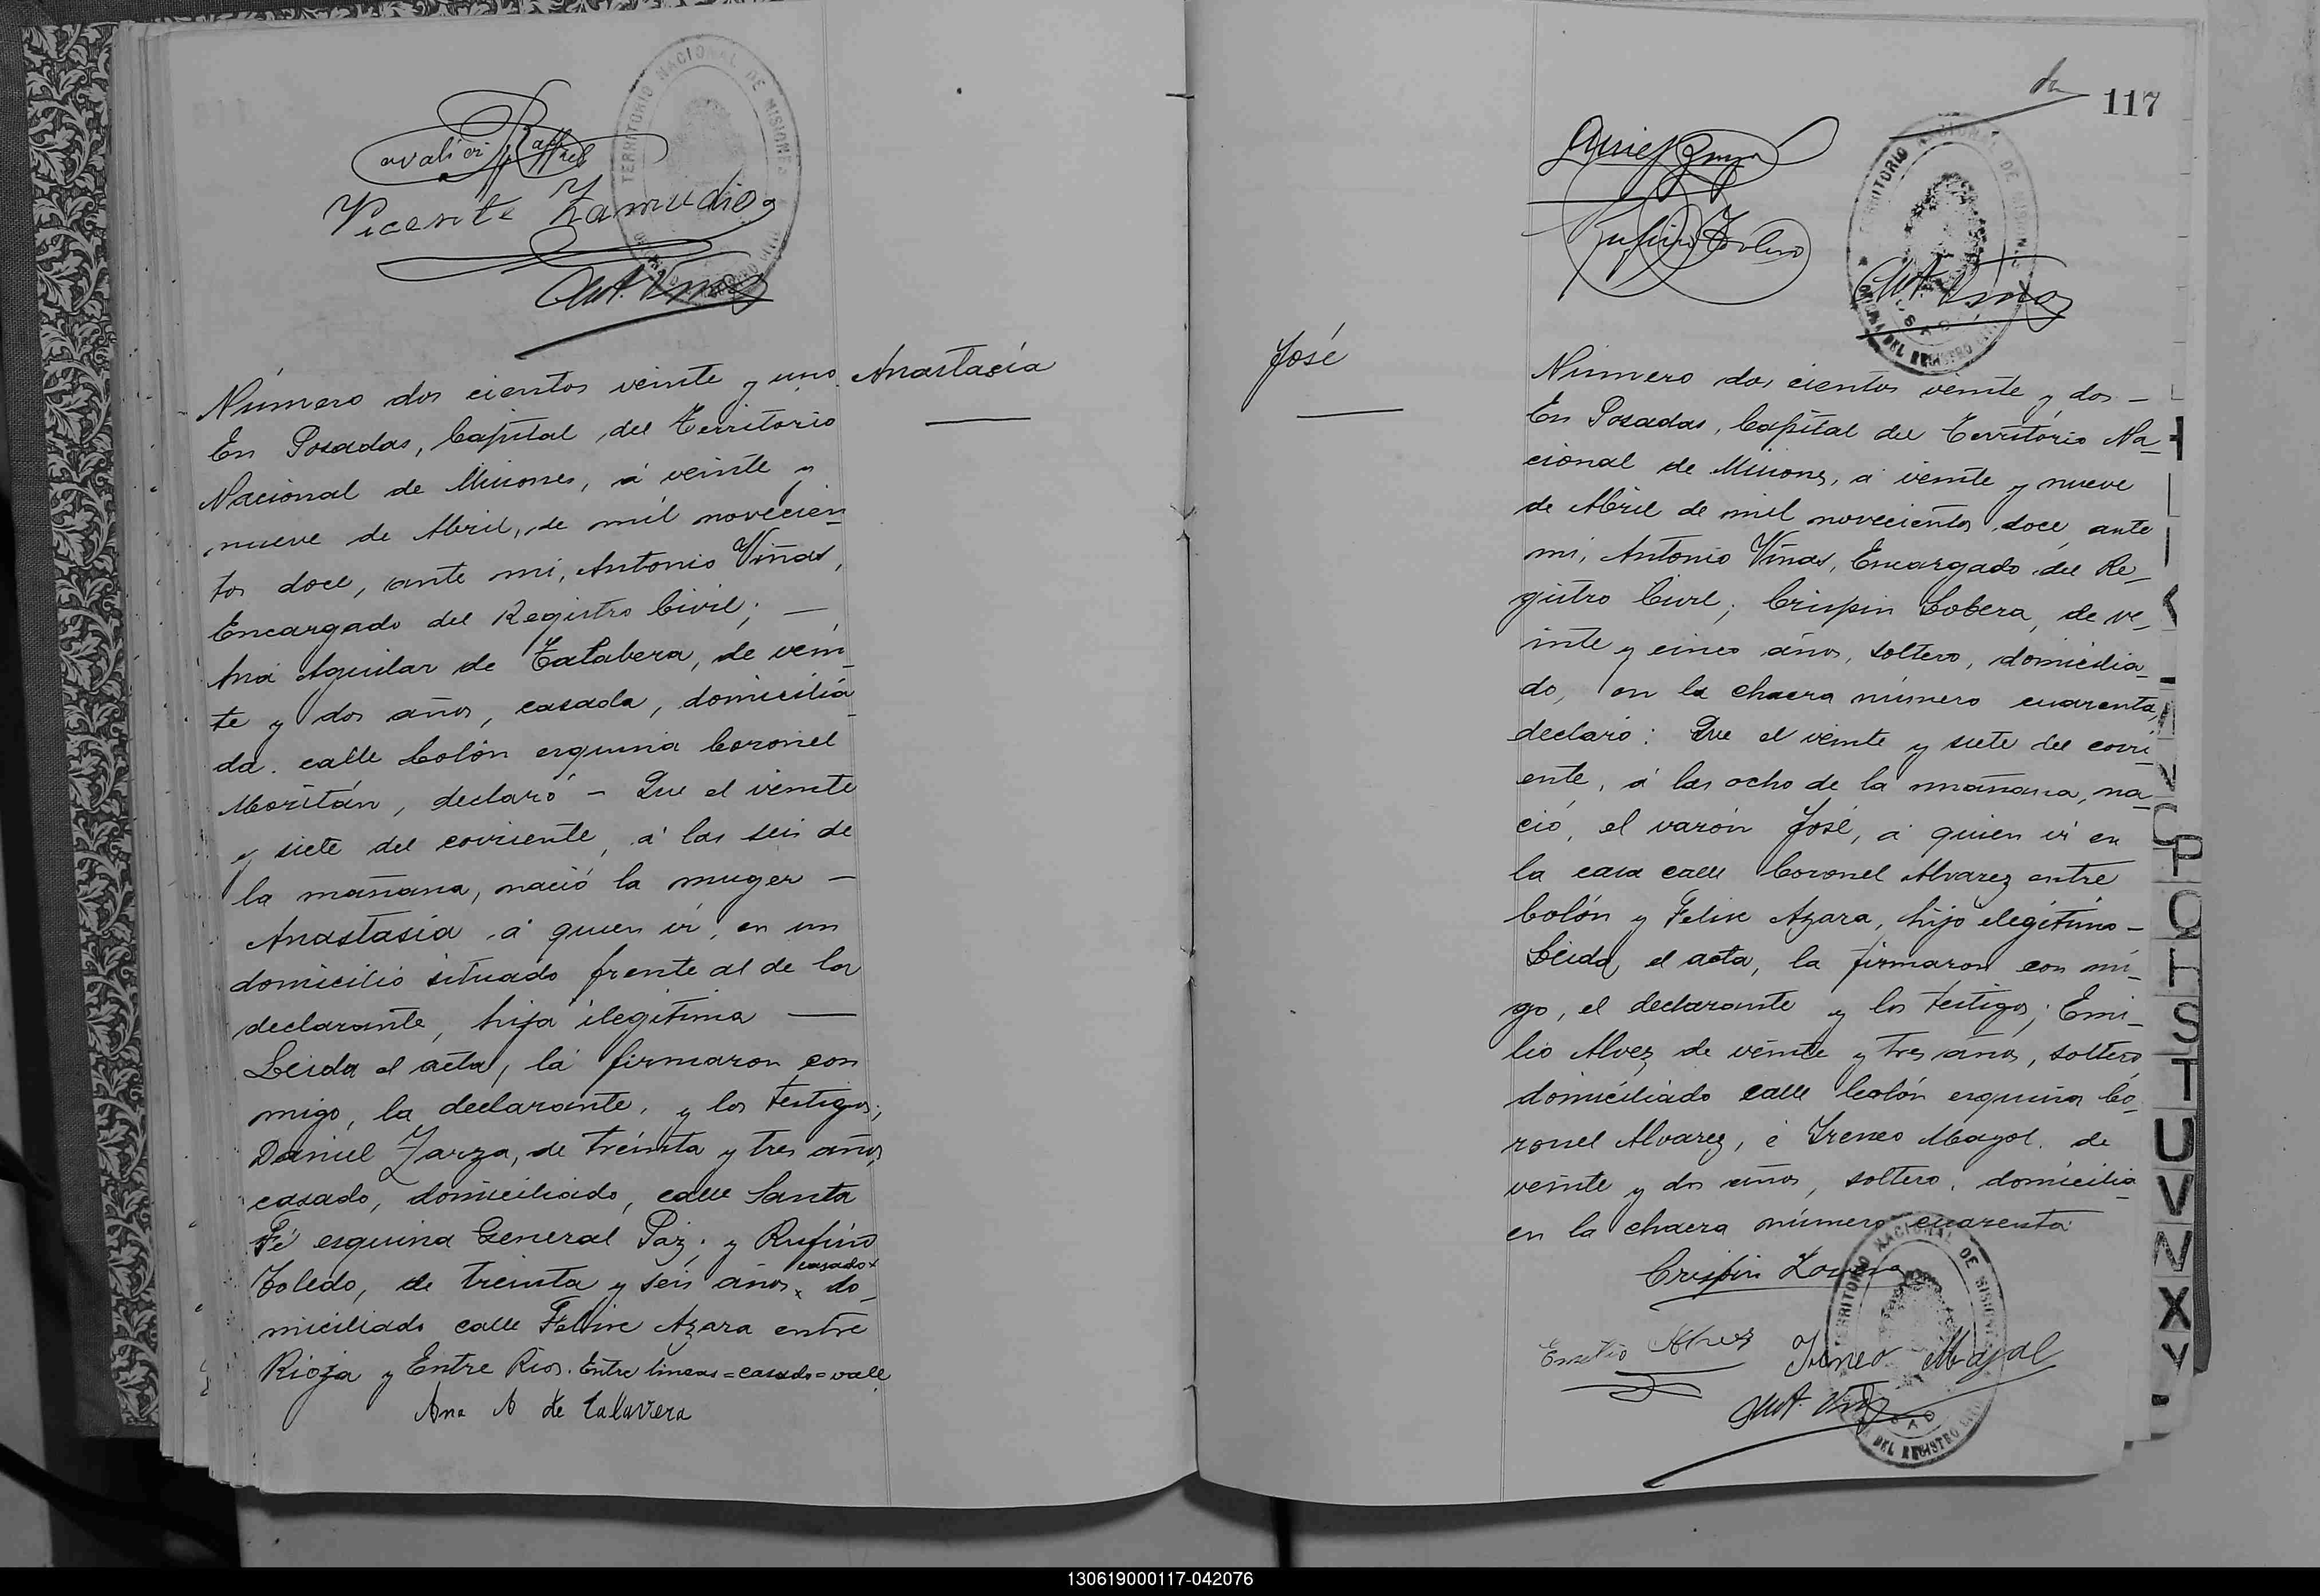 Vicente Zamudio
Ant. Viñas
TERRITORIO NACIONAL DE MISIONES
Número dos cientos veinte y uno
Anastacía
En Posadas, Capital del Territorio
Nacional de Misiones, á veinte y
nueve de Abril, de mil novecien
tos doce, ante mi, Antonio Viñas,
Encargado del Registro Civil; —
Ana Aguilar de Talabera, de vein
te y dos años, casada, domicilia
da. calle Colón esquina Coronel
Moritán, declaró – Que el veinte
y siete del corriente, á las seis de
la mañana, nació la muger –
Anastasia á quien ví, en un
domicilio situado frente al de la
declarante, hija ilegitima —
Leida el acta, la firmaron con
migo, la declarante, y los testigos;
Daniel Zarza, de treinta y tres años,
casado, domiciliado, calle Santa
Fé esquina General Paz; y Rufino
casado x
Toledo, de treinta y seis años x do_
miciliado calle Felix Azara entre
Rioja y Entre Rios. Entre lineas = casado = vale
Ana A de Talavera
117
Rufino Toledo
Ant. Viñas
TERRITORIO NACIONAL DE MISIONES
OFICINA DEL REGISTRO CIVIL
José
Número dos cientos veinte y dos –
En Posadas, Capital del Território Na_
cional de Misiones, á veinte y nueve
de Abril de mil novecientos doce, ante
mi, Antonio Viñas, Encargado del Re_
gistro Civil; Crispin Lobera, de ve_
inte y cinco años, soltero, domicilia_
do, en la chacra número cuarenta,
declaró: Que el veinte y siete del corri
ente, á las ocho de la mañana, na_
ció, el varón José, á quien ví en
la casa calle Coronel Alvarez entre
Colón y Felix Azara, hijo elegitimo –
Leida el acta, la firmaron con mi_
go, el declarante y los testigos; Emi_
lio Alvez de veinte y tres años, soltero
domiciliado calle Colón esquina Co_
ronel Alvarez, é Ireneo Mayol. de
veinte y dos años, soltero, domicilia
en la chacra número cuarenta
Crispin
Emilio Alvez
Ireneo Mayol
Ant. Viñas
TERRITORIO NACIONAL DE MISIONES
DEL REGISTRO
P
Q
H
S
T
U
V
X
Y
130619000117-042076